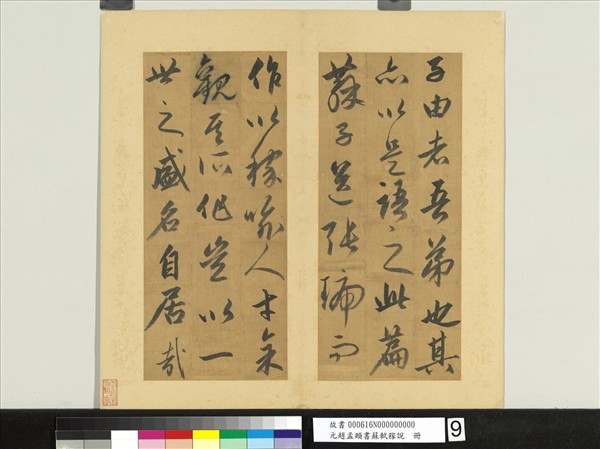 子由者吾弟也其
亦以是語之此篇
蘇子送張琥而
作以稼喻人才氣
觀其所作豈以一
世之盛名自居哉
故書 000616N000000000
元趙孟頫書蘇軾稼說 冊
9